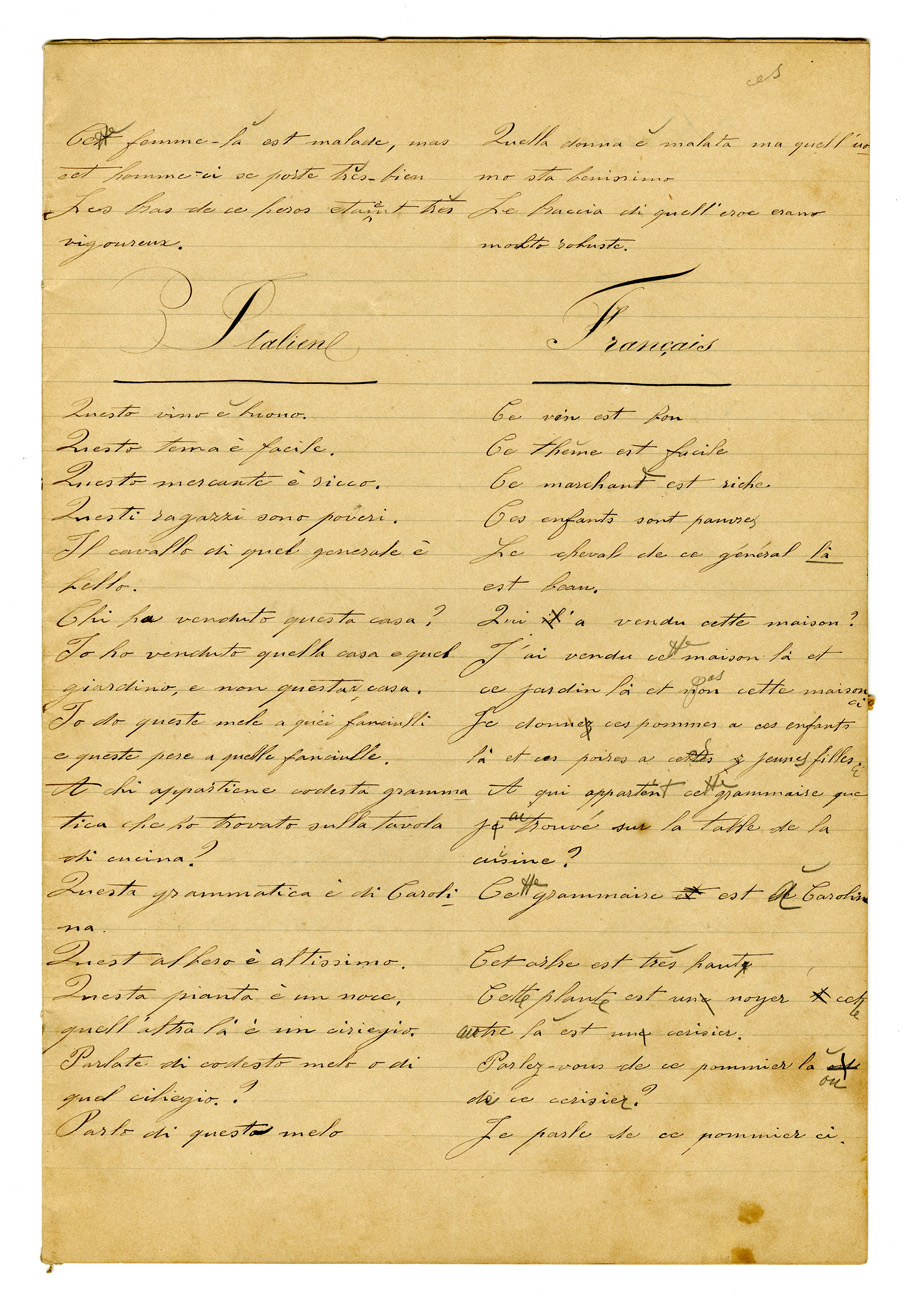 ces
Cette femme-là est malade, mas
cet homme-ci se porte très-bien
Les bras de ce héros etaient très
vigoureux.
Quella donna è malata ma quell'uo
mo sta benissimo
Le braccia di quell'eroe erano
molto robuste.
Italien
Questo vino è buono.
Questo tema è facile.
Questo mercante è ricco.
Questi ragazzi sono poveri.
Il cavallo di quel generale è
bello.
Chi ha venduto questa casa?
Io ho venduto quella casa e quel
giardino, e non questa casa.
Io do queste mele a quei fanciulli
e queste pere a quelle fanciulle.
A chi appartiene codesta gramma
tica che ho trovato sulla tavola
di cucina?
Questa grammatica è di Caroli-
na.
Quest albero è altissimo.
Questa pianta è un noce,
quell'altra là è un ciriegio.
Parlate di codesto melo o di
quel ciliegio.?
Parlo di questo melo
Français
Ce vin est bon
Ce thème est facile
Ce marchant est riche
Ces enfants sont pauvres
Le cheval de ce général là
est beau.
Qui a vendu cette maison?
J'ai vendu cette maison là et
ce jardin là et non pas cette maison
ci
Je donne ces pommes a ces enfants
là et ces poires a ces jeunes filles
ci
A qui appartent cette grammaire que
j'ai trouvé sur la table de la
cuisine?
Cette grammaire est à Carolin
Cet arbre est très haut
Cette plante est un noyer cet
te
autre là est un cerisier.
Parlez-vous de ce pommier là
ou
de ce cerisier?
Je parle de ce pommier ci.